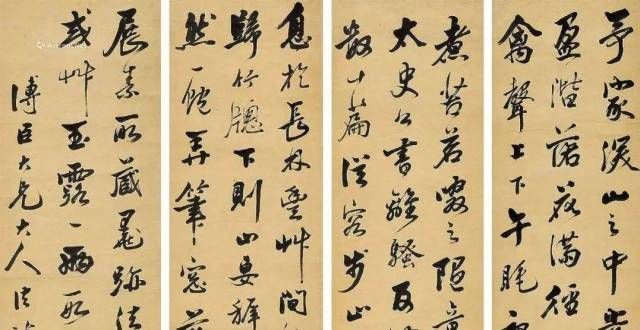 予家深山之中
盈階落花滿徑
禽聲上下午睡
煮苦茗啜之隨意
太史公書離騷及
數十篇從容步山
息於長林豐艸間
歸竹牕下則山妻稚
然一飽弄筆窓前
展素所藏墨跡法
或艸玉露一兩段
溥臣大兄大人法